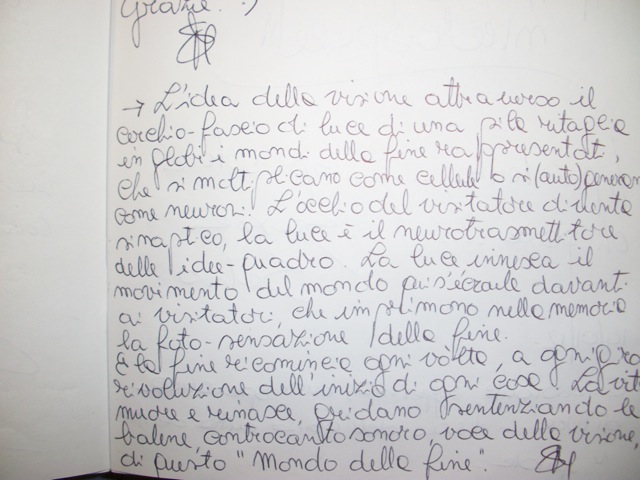 Grazie. :)
→ L'idea della visione attraverso il
cerchio-fascio di luce di una pila ritaglia
in globi i mondi della fine rappresentati,
che si moltiplicano come cellule o si (auto)generan
come neuroni. L'occhio del visitatore diventa
sinaptico, la luce è il neurotrasmettitore
delle idee-quadro. La luce innesca il
movimento del mondo davanti
ai visitatori, che imprimono nella memoria
la foto-sensazione della fine.
E la fine ricomincia ogni volta, a ogni giro
rivoluzione dell'inizio di ogni cosa. La vita
muore e rinasce, gridano sentenziando le
balene, controcanto sonoro, voce della visione,
di questo "Mondo della fine".